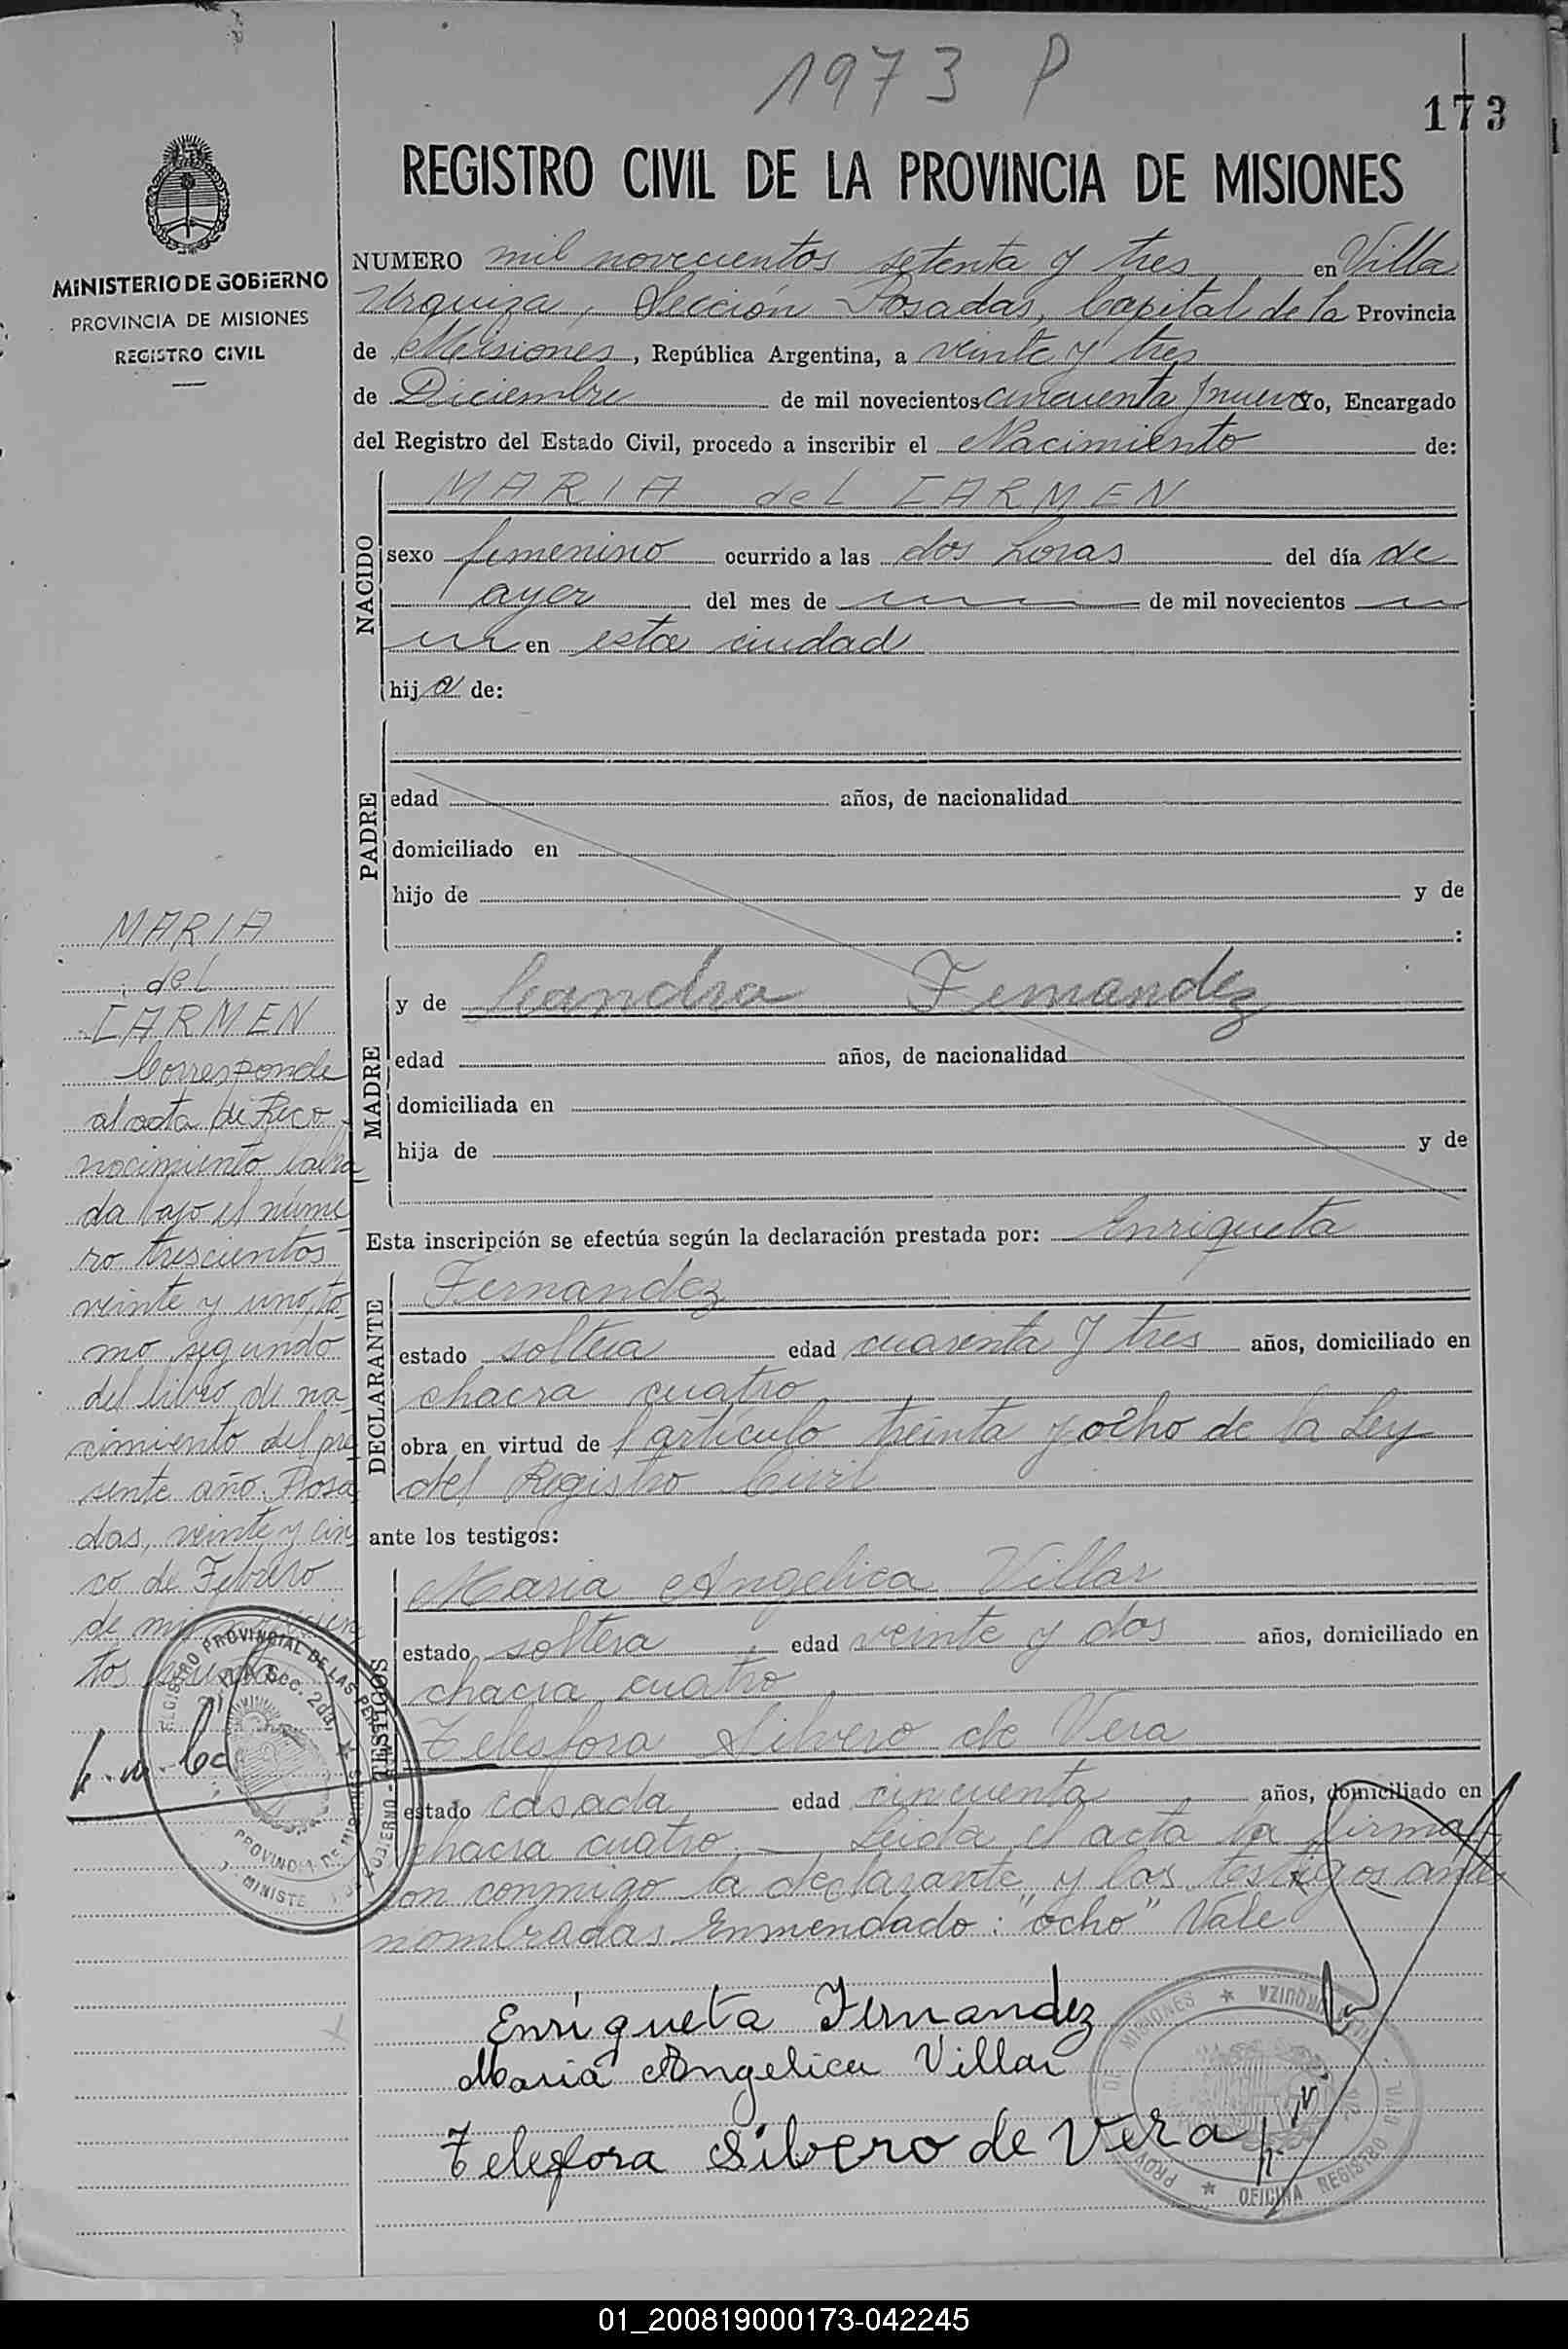 1973 P
173
REGISTRO CIVIL DE LA PROVINCIA DE MISIONES
MINISTERIO DE GOBIERNO
PROVINCIA DE MISIONES
REGISTRO CIVIL
NUMERO mil novecientos setenta y tres en Villa
Urquiza, Sección Posadas, Capital de la Provincia
de Misiones, República Argentina, a veinte y tres
de Diciembre de mil novecientos cincuenta y nueve Yo, Encargado
del Registro del Estado Civil, procedo a inscribir el Nacimiento de:
NACIDO
MARIA del CARMEN
sexo femenino ocurrido a las dos horas del día de
ayer del mes de de mil novecientos
en esta ciudad
hija de:
PADRE
edad años, de nacionalidad
domiciliado en
hijo de y de
:
MADRE
y de Leandra Fernandez
edad años, de nacionalidad
domiciliada en
hija de y de
Esta inscripción se efectúa según la declaración prestada por: Enriqueta
DECLARANTE
Fernandez
estado soltera edad cuarenta y tres años, domiciliado en
chacra cuatro
obra en virtud de l artículo treinta y ocho de la Ley
del Registro Civil
ante los testigos:
TESTIGOS
Maria Angelica Villar
estado soltera edad veinte y dos años, domiciliado en
chacra cuatro
Telesfora Silvero de Vera
estado casada edad cincuenta años, domiciliado en
chacra cuatro. — Leida el acta la firma
on conmigo la declarante y las testigos ante
nombradas. Enmendado: "ocho" Vale
Enriqueta Fernandez
Maria Angelica Villar
Telesfora Silvero de Vera
MARIA
del
CARMEN
Corresponde
al acta de Reco
nocimiento labra
da bajo el núme
ro trescientos
veinte y uno, to
mo segundo
del libro de na
cimiento del pre
sente año. Posa
das, veinte y cin
co de Febrero
de mil novecien
tos
REGISTRO PROVINCIAL DE LAS PER
Sec. 2da.
PROVINCIA DE MISIONES
MINISTE GOBIERNO
PROV DE MISIONES ★ URQUIZA
★ OFICINA REGISTRO CIVIL
01_200819000173-042245